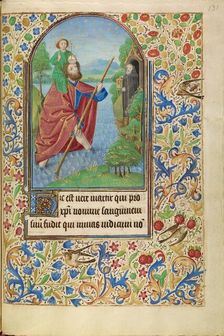 131
Hic est vere martir qui pro
xpi nomine sanguinem
suum fudit qui minas iudicum no